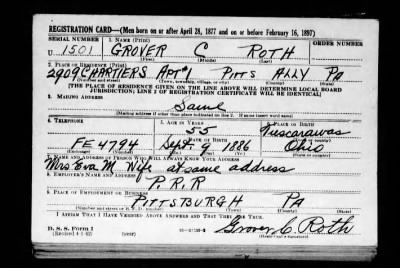 REGISTRATION CARD—(Men born on or after April 28, 1877 and on or before February 16, 1897)
SERIAL NUMBER 1. NAME (Print) ORDER NUMBER
U 1501 GROVER C ROTH
(First) (Middle) (Last)
2. PLACE OF RESIDENCE (Print)
2909 CHARTIERS APT#1 PITTS ALLY PA
(Number and street) (Town, township, village, or city) (County) (State)
[THE PLACE OF RESIDENCE GIVEN ON THE LINE ABOVE WILL DETERMINE LOCAL BOARD
JURISDICTION; LINE 2 OF REGISTRATION CERTIFICATE WILL BE IDENTICAL]
3. MAILING ADDRESS
Same
[Mailing address if other than place indicated on line 2. If same insert word same]
4. TELEPHONE 5. AGE IN YEARS 6. PLACE OF BIRTH
55 Tuscarawas
DATE OF BIRTH (Town or county)
FE 4794 Sept. 9 1886 Ohio
(Exchange) (Number) (Mo.) (Day) (Yr.) (State or country)
7. NAME AND ADDRESS OF PERSON WHO WILL ALWAYS KNOW YOUR ADDRESS
Mrs Eva M. Wife at same address
8. EMPLOYER'S NAME AND ADDRESS
P.R.R
9. PLACE OF EMPLOYMENT OR BUSINESS
PITTSBURGH PA
(Number and street or R. F. D. number) (Town) (County) (State)
I AFFIRM THAT I HAVE VERIFIED ABOVE ANSWERS AND THAT THEY ARE TRUE.
D. S. S. FORM 1
(Revised 4-1-42) (over)
Grover C. Roth
(Registrant's signature)